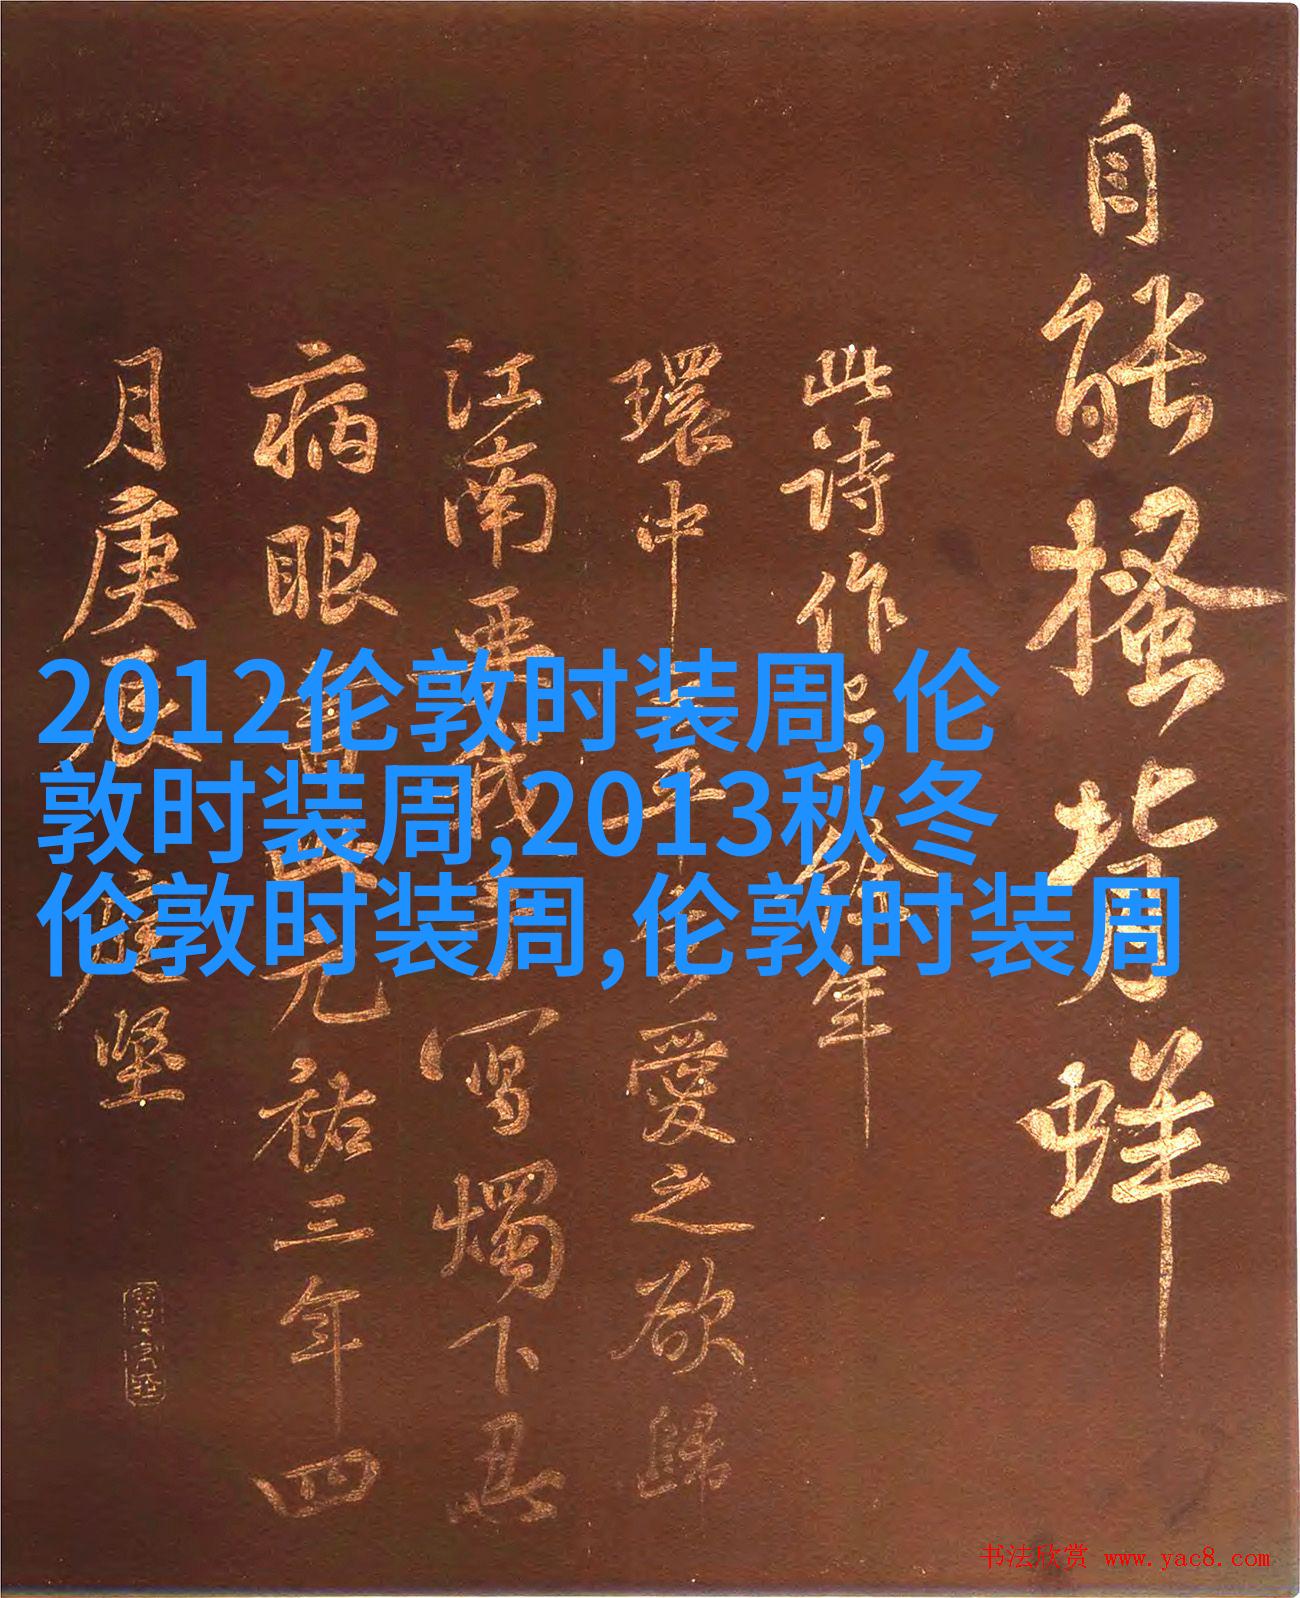 自能搔背蛘
此詩作年
環中愛之欲歸
江南寫燭下忍
病眼書元祐三年四
月庚辰庭堅
2012伦敦时装周,伦
敦时装周,2013秋冬
伦敦时装周,伦敦时装周
书法欣赏 www.yac8.com